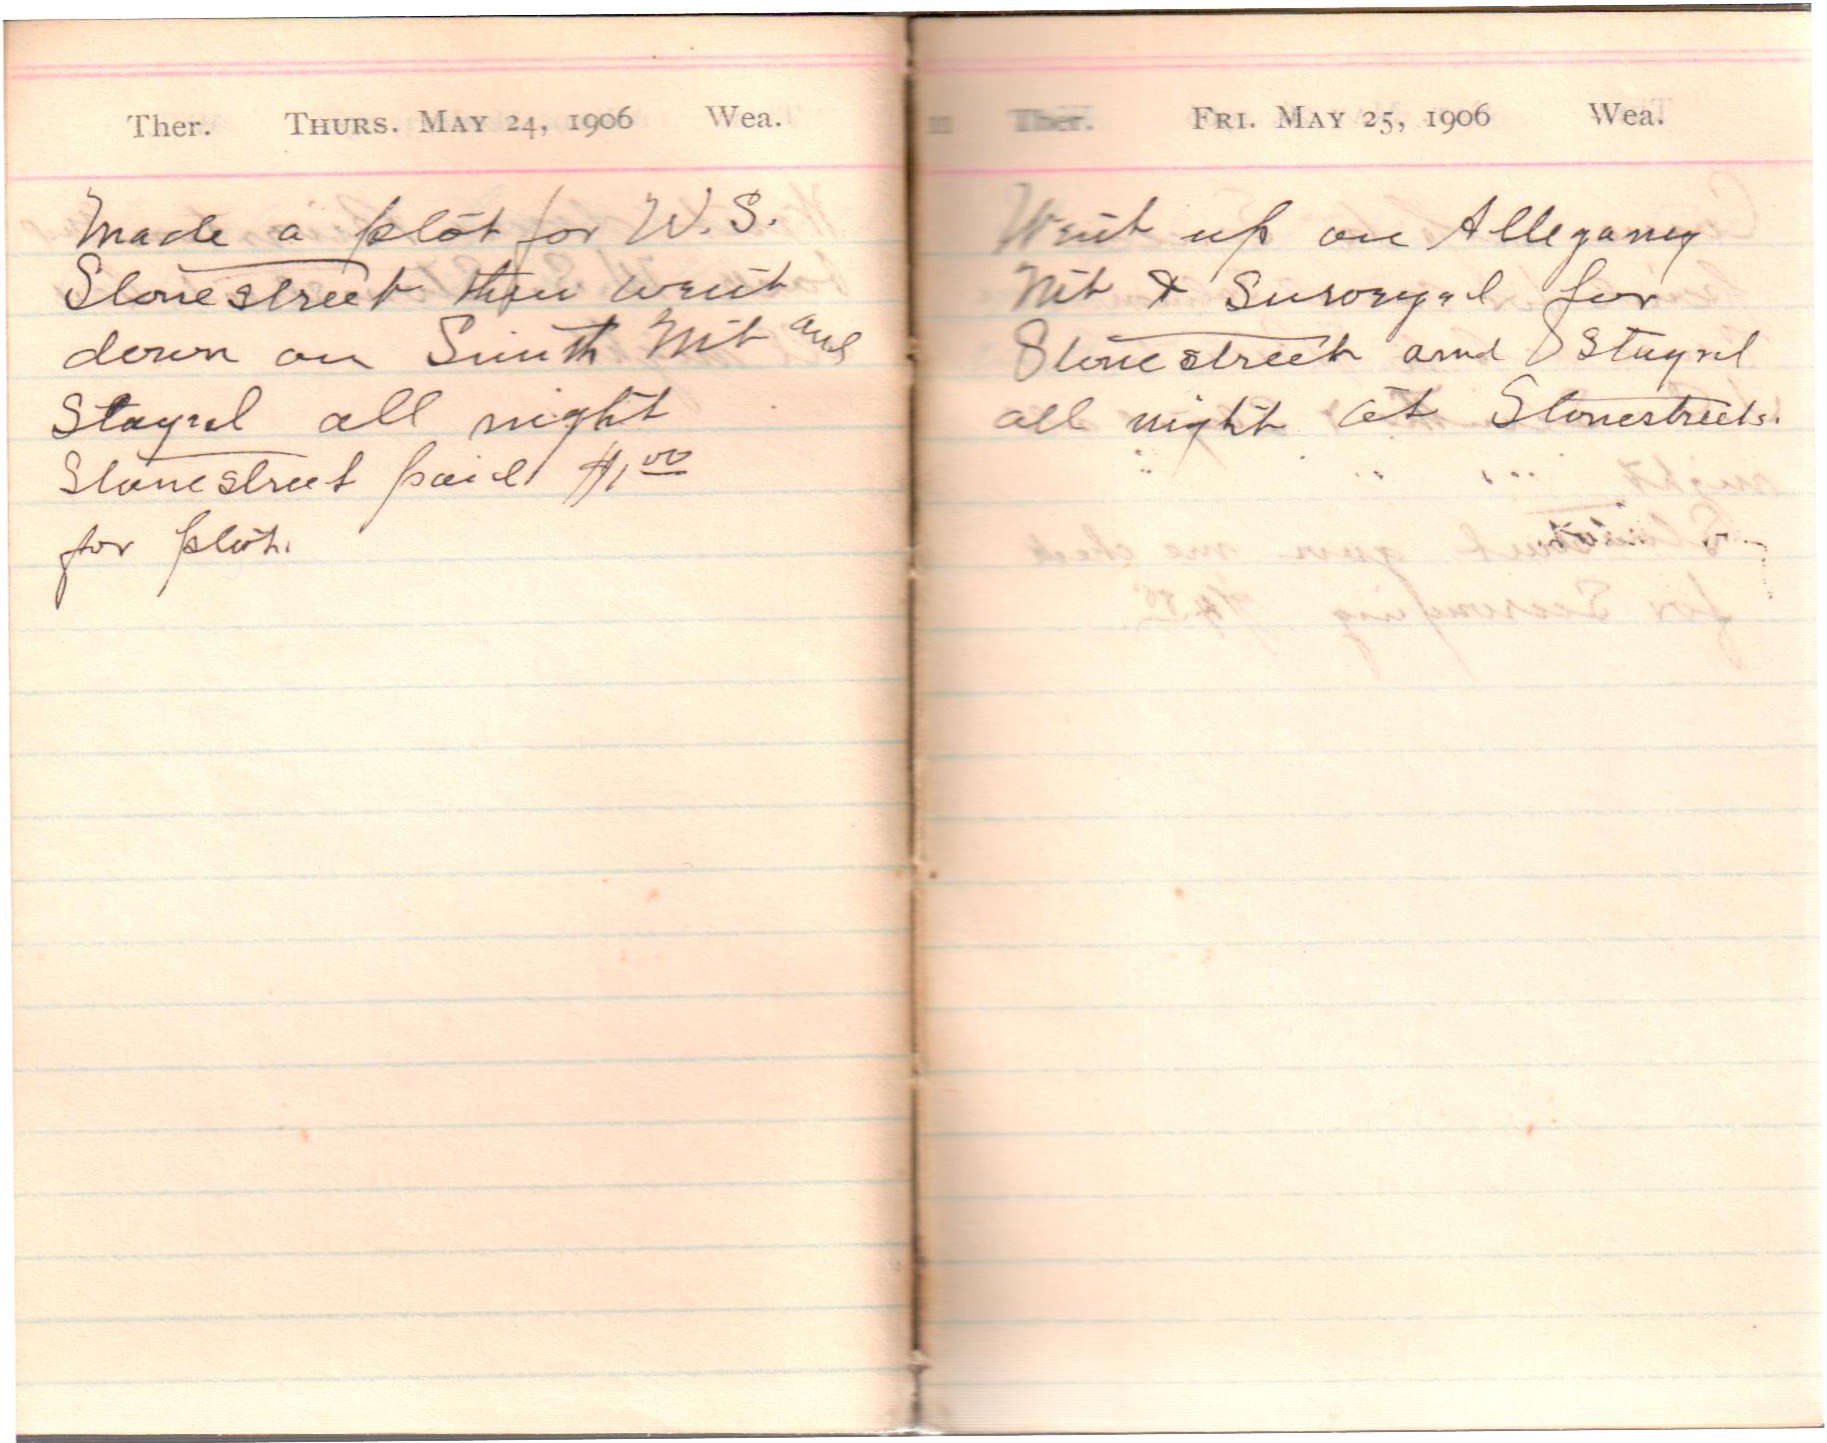 Ther. THURS. MAY 24, 1906 Wea.
Made a plot for W. S.
Stonestreet then went
down on Smith Mt and
Stayed all night
Stonestreet paid $1.00
for plot.
Ther. FRI. MAY 25, 1906 Wea.
Went up on Allegany
Mt & Surveyed for
Stonestreet and Stayed
all night at Stonestreets.